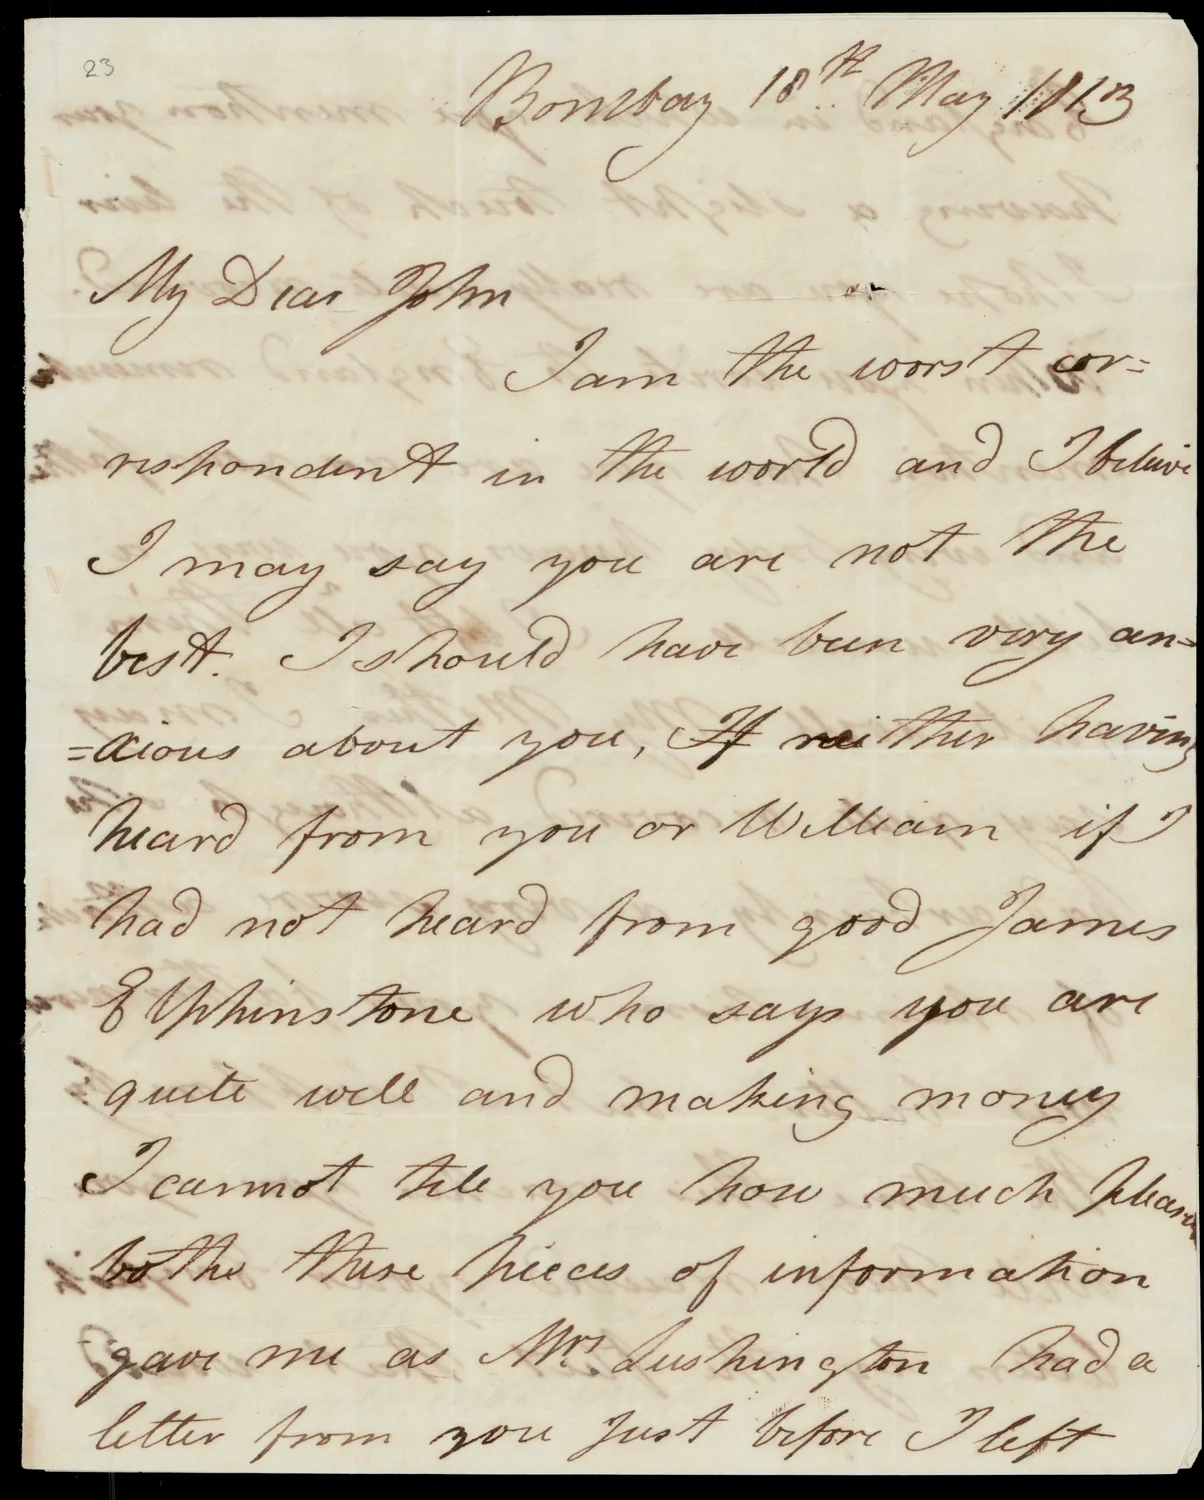 23
Bombay 18th May 1813
My Dear John
I am the worst cor=
respondent in the world and I believe
I may say you are not the
best. I should have been very an=
=xious about you, If neither having
heard from you or William if I
had not heard from good James
Elphinstone who says you are
quite well and making money
I cannot tell you how much pleasure
bothe these pieces of information
gave me as Mrs. Lushington had a
letter from you just before I left